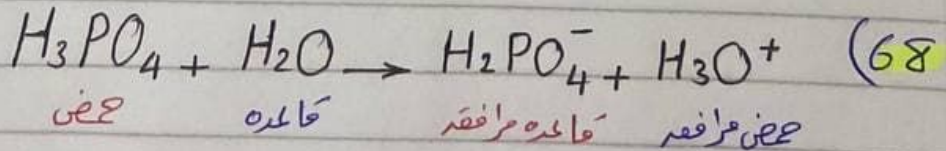 H₃PO₄ + H₂O → H₂PO₄⁻ + H₃O⁺ (68
حمض قاعده قاعده مرافقه حمض مرافق